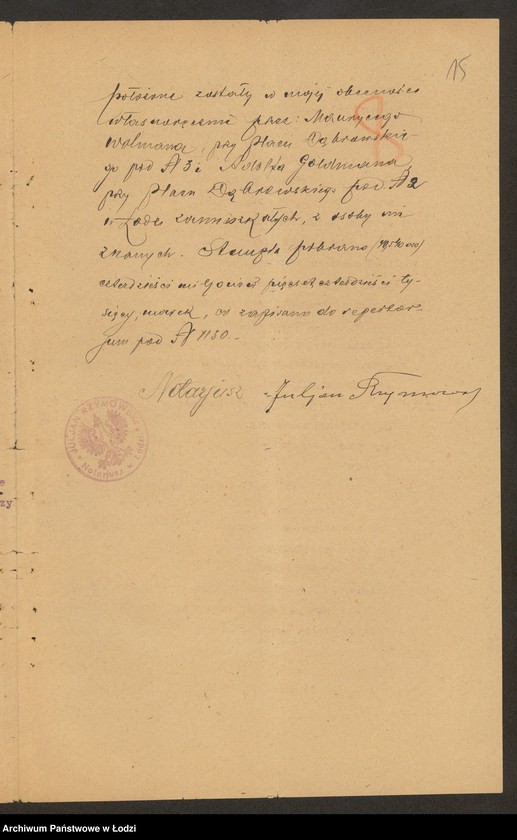 15
położone zostały w mojej obecności
własnoręcznie przez: Maurycego
Wolmana, przy Placu Dąbrowskie-
go pod № 3 i Adolfa Goldmana
przy Placu Dąbrowskiego pod № 2
w Łodzi zamieszkałych, z osoby mi
znanych. Stempla pobrano
czterdzieści miljonów pięćset czterdzieści ty-
sięcy marek, i zapisano do repertor-
jum pod № 1150.-
Notarjusz Juljan Rzymowski
JULJAN RZYMOWSKI
Notarjusz w Łodzi
e
zy
Archiwum Państwowe w Łodzi